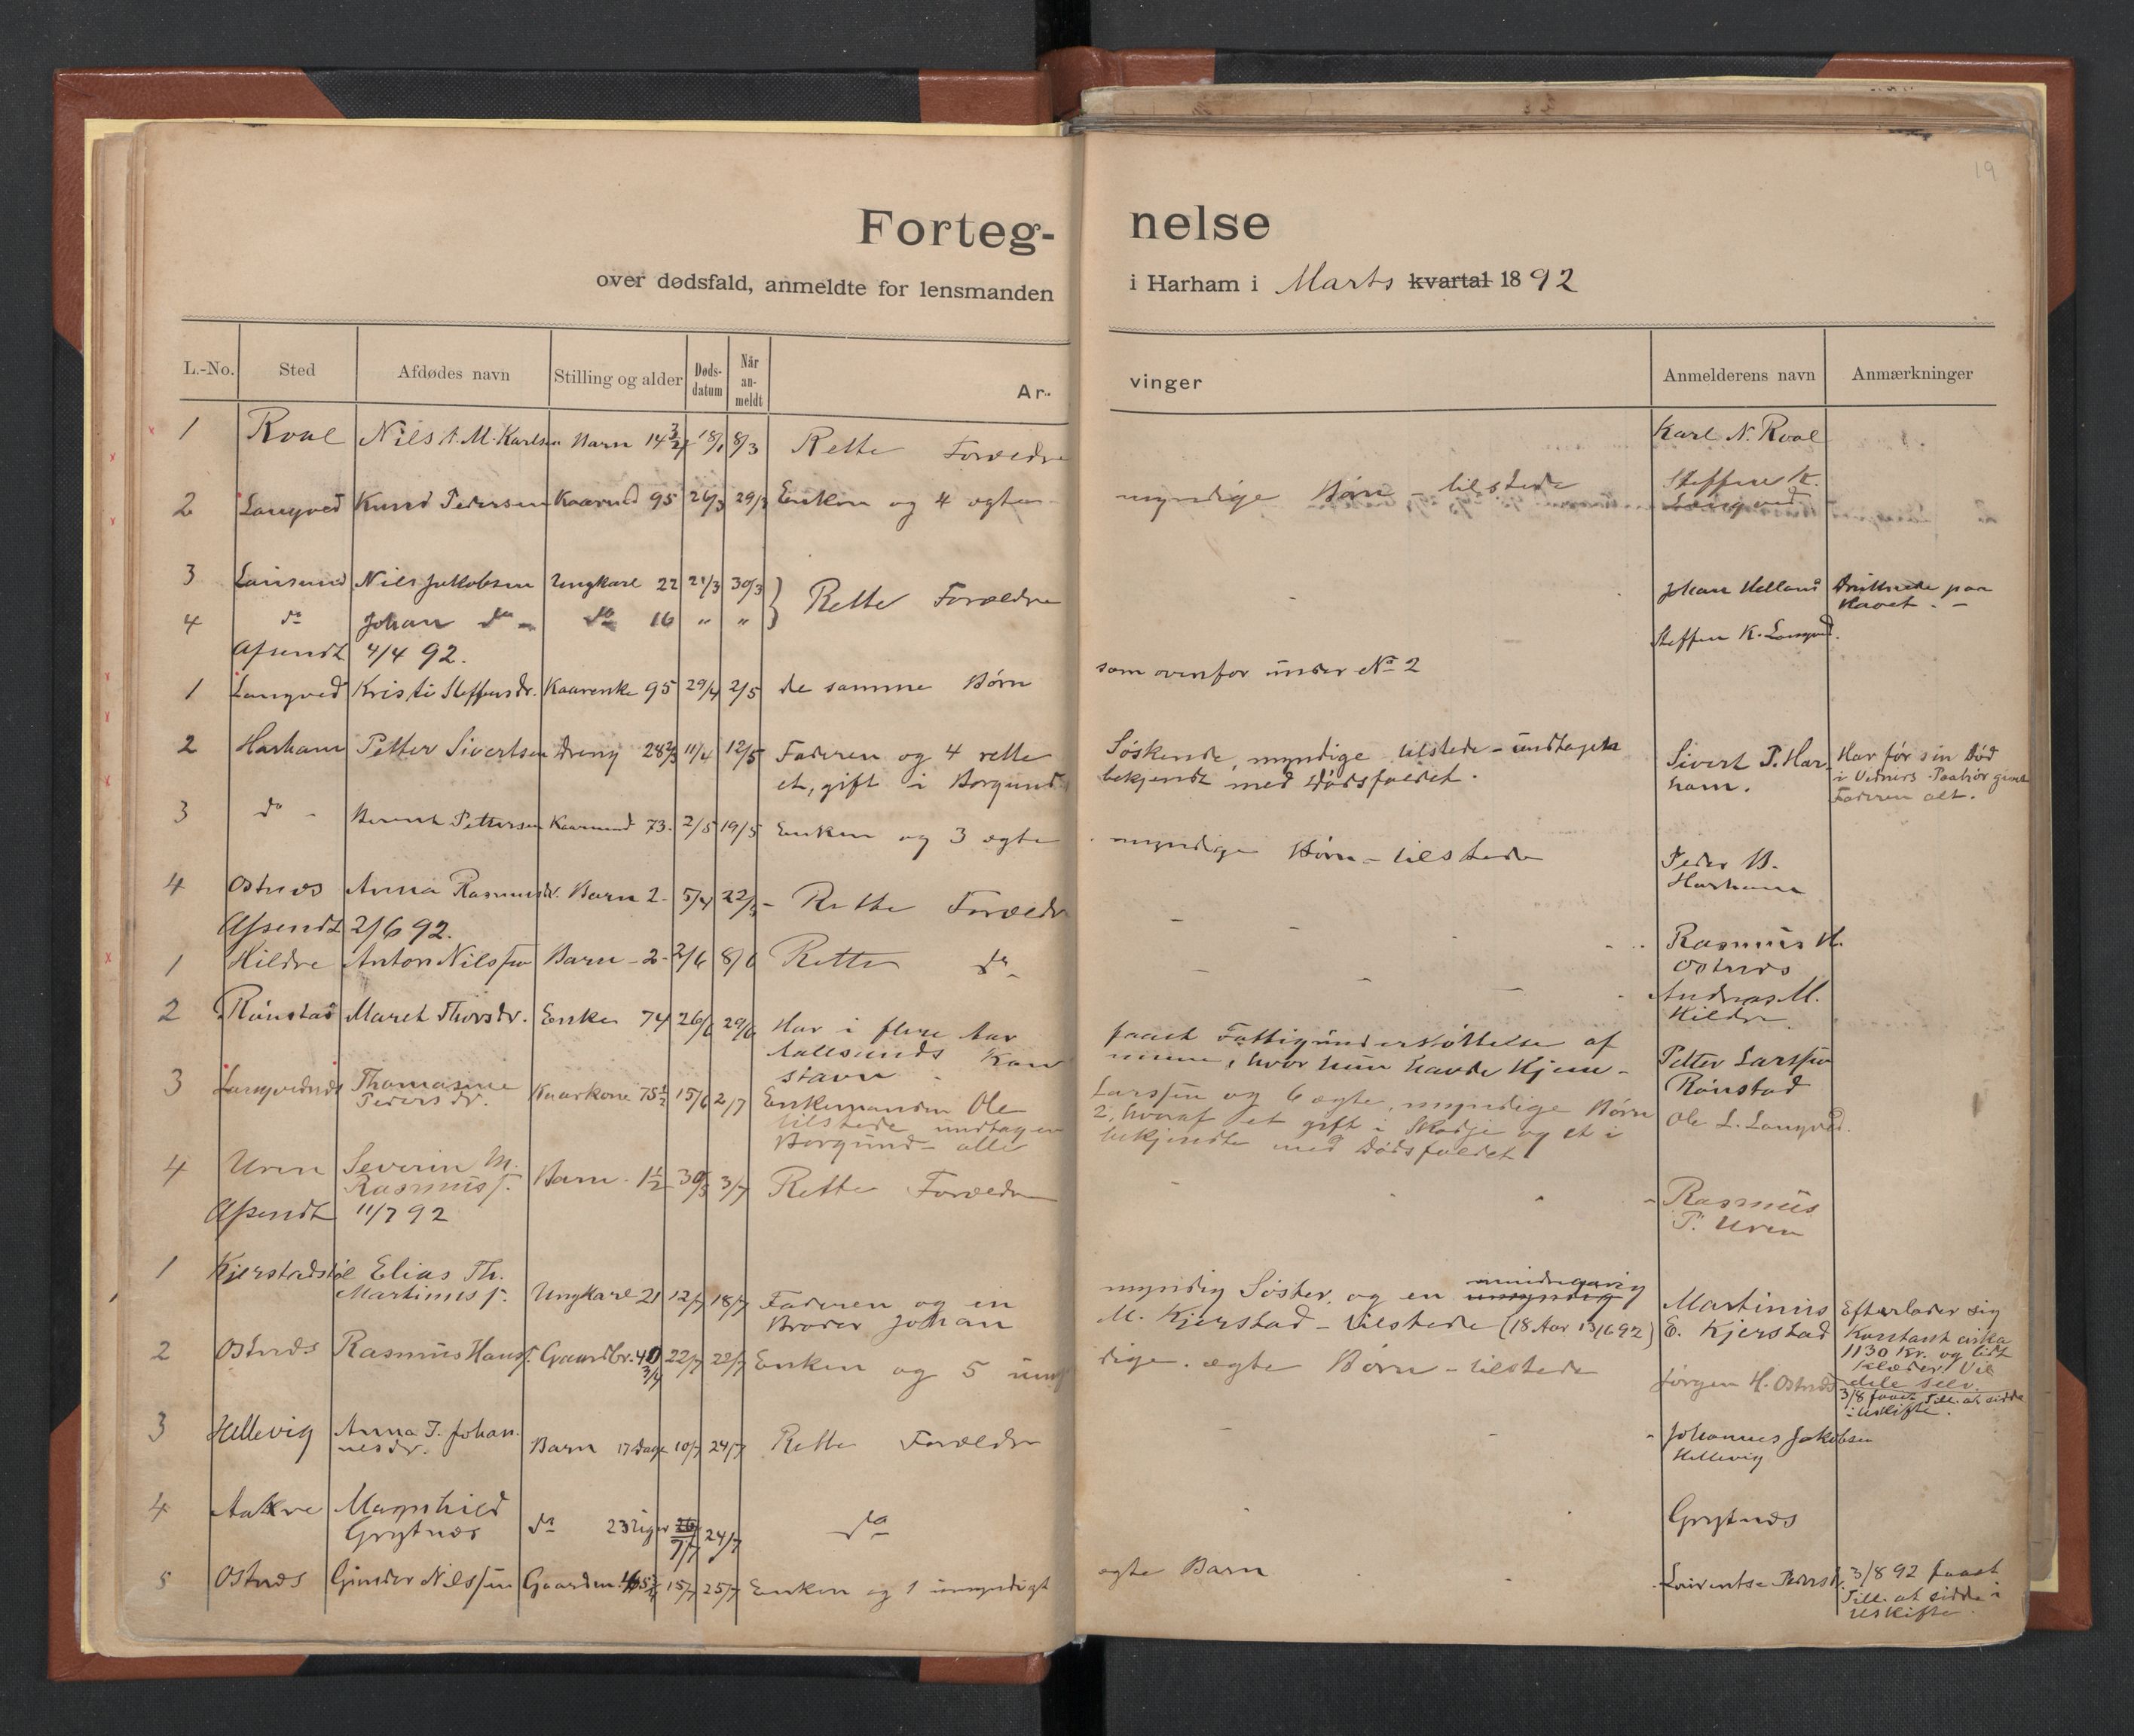 19
Forteg-nelse
over dødsfald, anmeldte for lensmanden i Harham i Marts kvartal 1892
L.-No. Sted Afdødes navn Stilling og alder Døds-datum Når an-meldt Ar-vinger Anmelderens navn Anmærkninger
1 Roal Nils M. Karlsen Barn 14 18/1 8/3 Rette Forældre Karl N. Roal
2 Longved Knud Pedersen Kaarmd 95 26/3 29/3 Enken og 4 ægte myndige Børn - tilstede Steffen K.
Longved
3 Nils Jakobsen Ungkarl 22 21/3 30/3 } Rette Forældre - Johan Helland Druknede paa
Havet. -
4 do Johan do - do 16 " " - Steffen K. Longved.
Afsendt 4/4 92.
1 Longved Kristi Steffensdr. Kaarenke 95 29/4 2/5 de samme Børn som ovenfor under No 2
2 Harham Petter Sivertsen Dreng 28 2/3 11/4 12/5 Faderen og 4 rette Søskende, myndige tilstede - undtagen Sivert P. Har- Har før sin Død
et, gift i Borgund bekjendt med Dødsfaldet. ham. i Vidners Paahør givet
Faderen alt.
3 do - Berent Pettersen Kaarmand 73. 2/5 19/5 Enken og 3 ægte myndige Børn - tilstede Peder B.
Harham
4 Ostnes Anna Rasmusdr. Barn 2 - 5/4 22/5 - Rette Forældre - - - Rasmus H.
Ostnes
Afsendt 2/6 92.
1 Hildre Anton Nilssen Barn - 2 - 2/6 8/6 Rette do - - - Andreas M.
Hildre
2 Rønstad Maret Thorsdr. Enke 74 26/6 29/6 Har i flere Aar faaet Fattigunderstøttelse af Petter Larssen
Aalesunds Kommune, hvor hun havde Hjem- Rønstad
stavn.
3 Longvednes Thomasine Kaarkone 75 1/2 15/6 2/7 Enkemanden Ole Larssen og 6 ægte, myndige Børn Ole L. Longved.
Pedersdr. tilstede undtagen 2, hvoraf et gift i Skodje og et i
Borgund - alle bekjendte med Dødsfaldet
4 Uren Severin M. Barn - 1 1/2 30/5 3/7 Rette Forældre - " - Rasmus
Rasmuss. P. Uren
Afsendt 11/7 92
1 Elias Th. Ungkarl 21 12/7 18/7 Faderen og en myndig Søster, og en umyndig mindreaarig Martinus Efterlader sig
Martinuss. Broder Johan M. Kjerstad - tilstede (18 Aar 13/6 92) E. Kjerstad Kontant cirka
1130 Kr. og lidt
Klæder. Vil
dele selv.
2 Ostnes Rasmus Hanss. Gaardbr. 40 3/4 22/7 22/7 Enken og 5 umyndige. ægte Børn - tilstede Jørgen H. Ostnes 3/8 faaet Till. at sidde
i Uskifte.
3 Hellevig Anna J. Johan- Barn 17 Dage 10/7 24/7 Rette Forældre - - " Johannes Jakobsen
nesdr. Hellevig
4 Aakre Magnhild do 23 Uger 7/7 24/7 do Grytnes
Grytnes
5 Ostnes Gunder Nilssen Gaardm. 15/7 25/7 Enken og 1 umyndigt ægte Barn - Laurentse Pedersd. 3/8 92 faaet
Till. at sidde i
Uskifte.